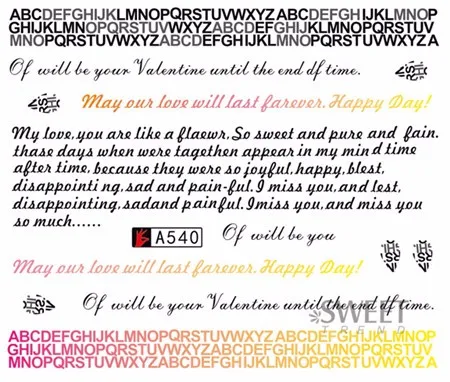 ABCDEFGHIJKLMNOPQRSTUVWXYZ ABCDEFGHIJKLMNOP
GHIJKLMNOPQRSTUVWXYZABCDEFGHIJKLMNOPQRSTUV
MNOPQRSTUVWXYZABCDEFGHIJKLMNOPQRSTUVWXYZ A
Of will be your Valentine until the end df time.
May our love will last farever. Happy Day!
My love, you are like a flaewr. So sweet and pure and fain.
thase days when were tagethen appear in my min d time
after time, because they were so joyful, happy, blest,
disappointi ng, sad and pain-ful. I miss you, and lest,
disappointing, sadand painful. Imiss you, and miss you
so much......
A540
Of will be you
May our love will last farever. Happy Day!
Of will be your Valentine until the end df time.
SWEET
TREND
ABCDEFGHIJKLMNOPQRSTUVWXYZ ABCDEFGHIJKLMNOP
GHIJKLMNOPQRSTUVWXYZABCDEFGHIJKLMNOPQRSTUV
MNOPQRSTUVWXYZABCDEFGHIJKLMNOPQRSTUVWXYZ A